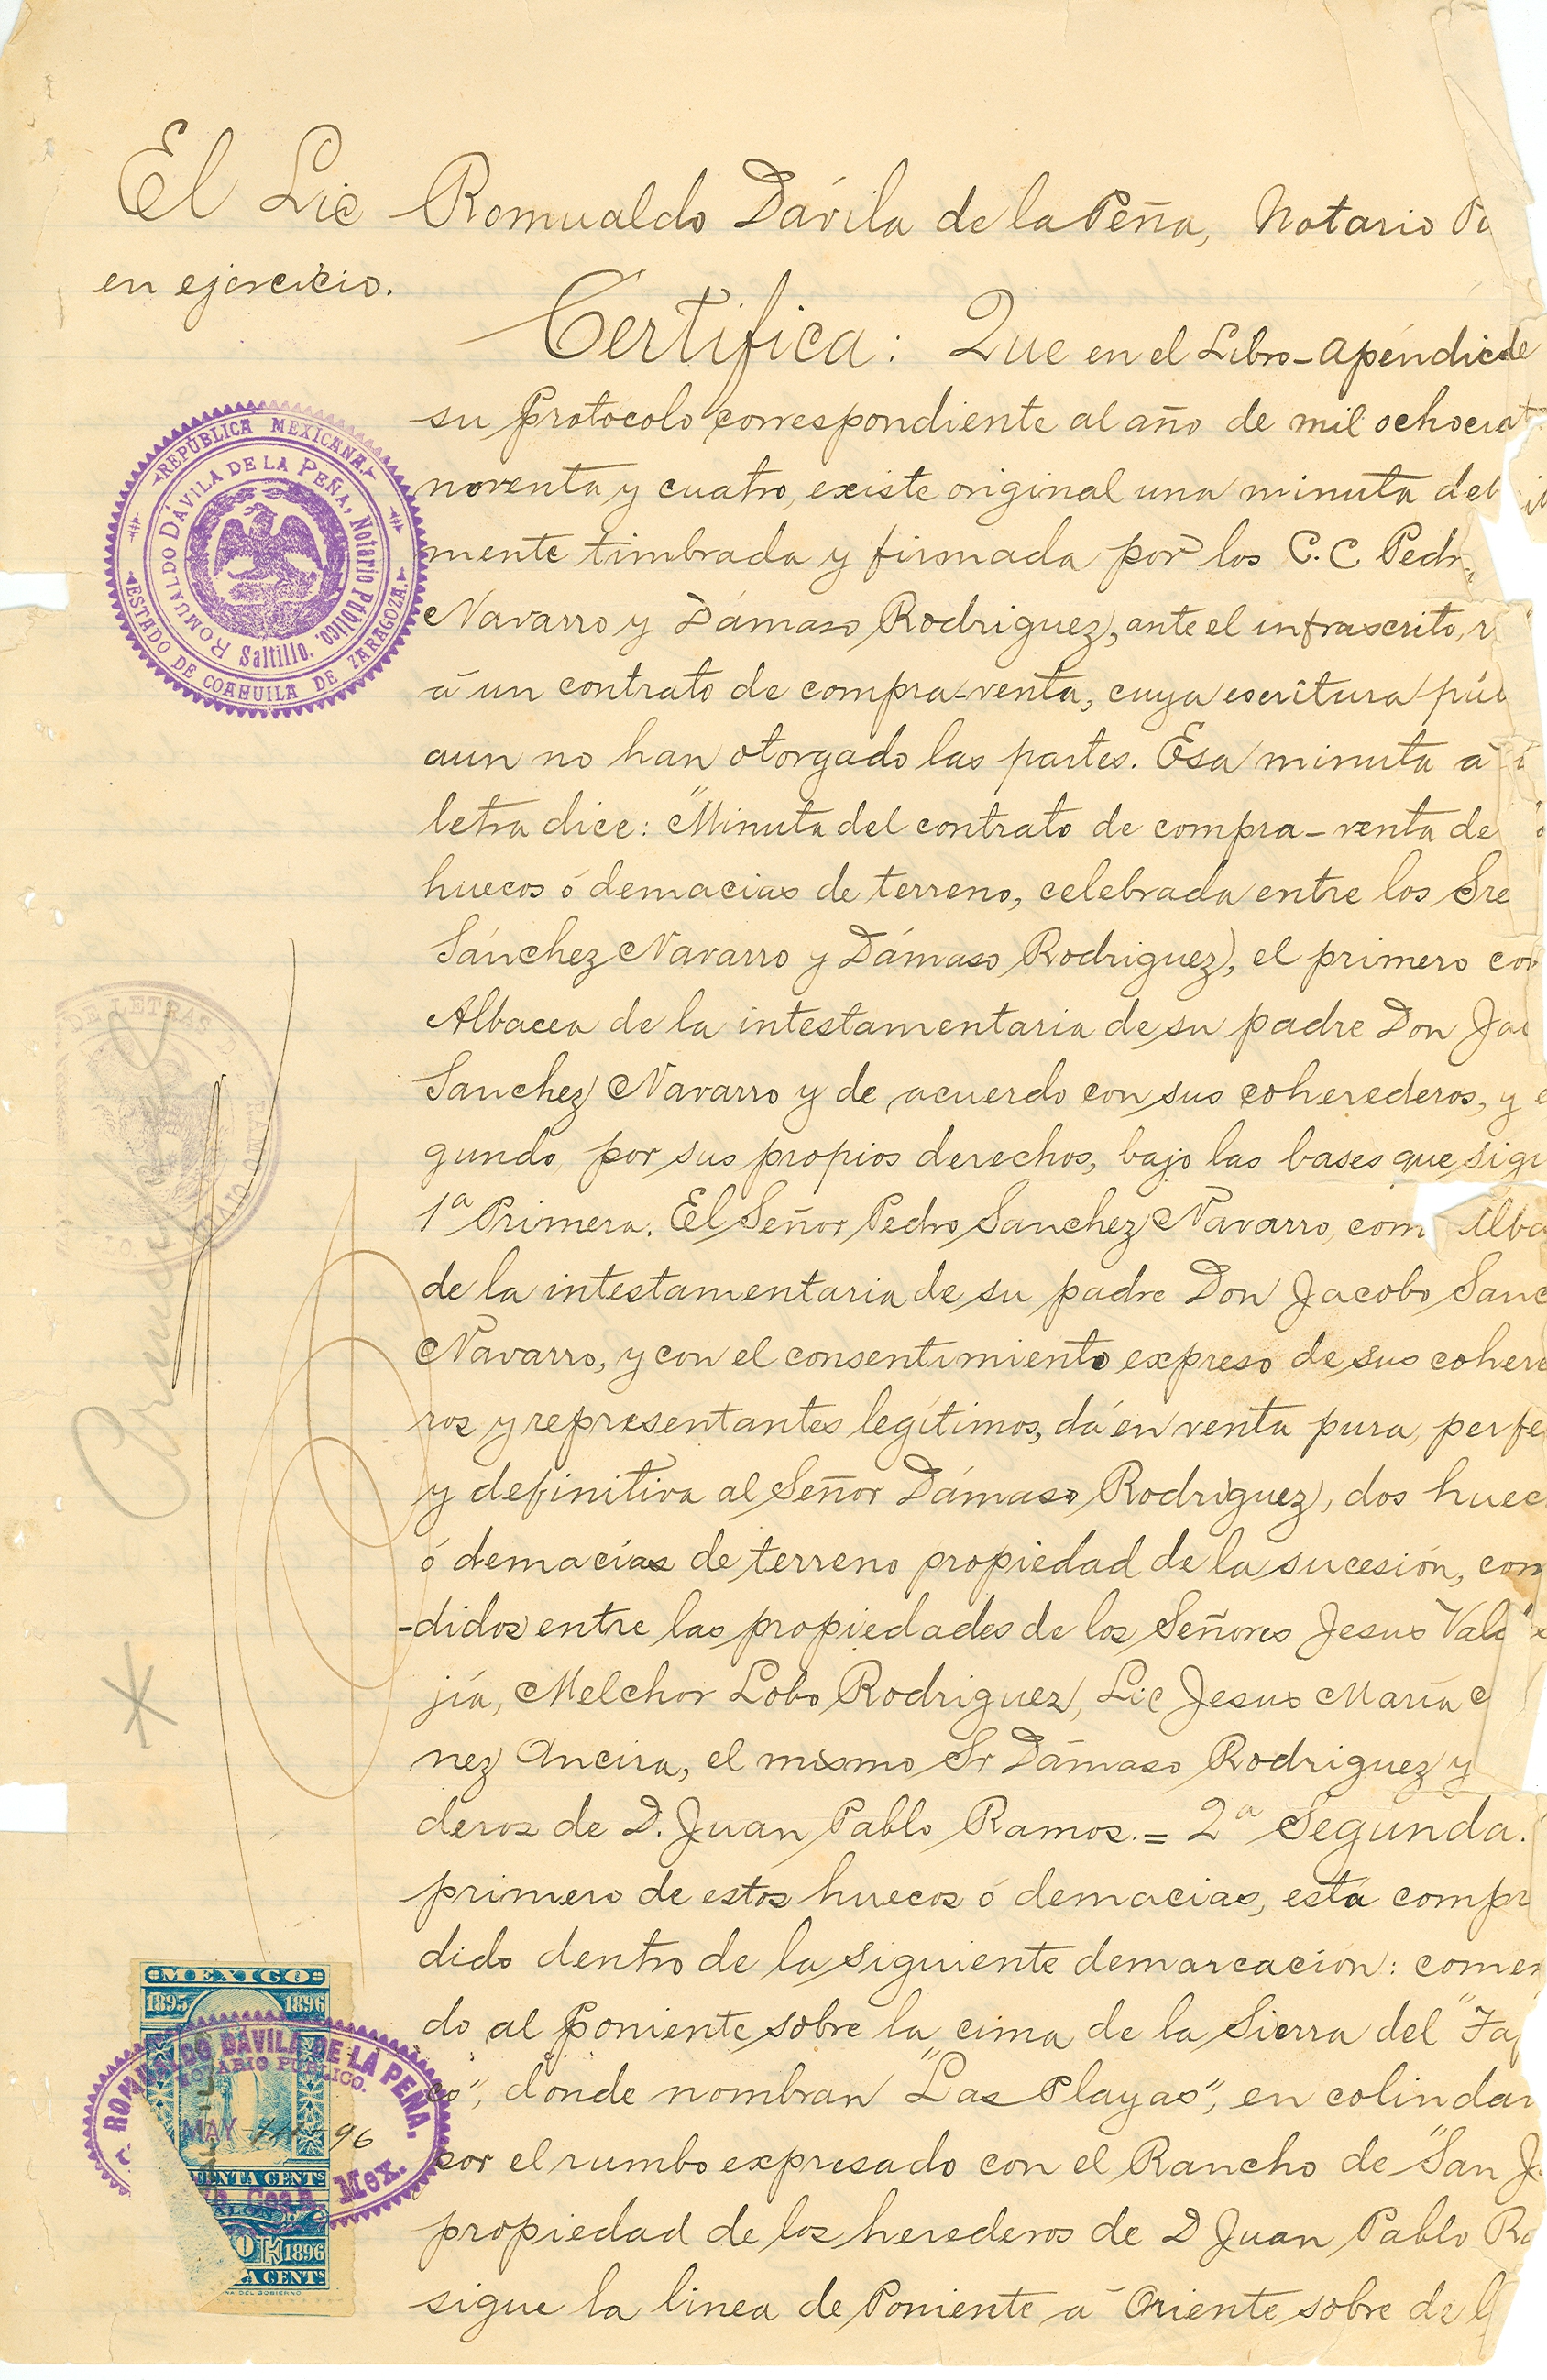 El Lic Romualdo Dávila de la Peña, Notario
en ejercicio.
Certifica: Que en el Libro-apéndice de
su protocolo correspondiente al año de mil ochocient
noventa y cuatro, existe original una minuta deb
mente timbrada y firmada por los C.C Pedr
Navarro y Dámaso Rodriguez, ante el infrascrito, r
á un contrato de compra-venta, cuya escritura pú
aun no han otorgado las partes. Esa minuta á
letra dice: "Minuta del contrato de compra-venta de
huecos ó demacias de terreno, celebrada entre los Sre
Sánchez Navarro y Dámaso Rodriguez, el primero co
Albacea de la intestamentaria de su padre Don Jac
Sanchez Navarro y de acuerdo con sus coherederos, y e
gundo por sus propios derechos, bajo las bases que sigu
1ª Primera. El Señor Pedro Sanchez Navarro, com Alba
de la intestamentaria de su padre Don Jacobo Sanc
Navarro, y con el consentimiento expreso de sus cohere
ros y representantes legítimos, dá en venta pura, perfe
y definitiva al Señor Dámaso Rodriguez, dos huec
ó demacías de terreno propiedad de la sucesión, com
-didos entre las propiedades de los Señores Jesus Vald
jía, Melchor Lobo Rodriguez, Lic Jesus María
nez Ancira, el mismo Sr Dámaso Rodriguez y
deros de D. Juan Pablo Ramos.= 2ª Segunda.
primero de estos huecos ó demacias, está compr
dido dentro de la siguiente demarcación: comen
do al poniente sobre la cima de la Sierra del "
co", donde nombran "Las Playas", en colindan
por el rumbo expresado con el Rancho de "San J
propiedad de los herederos de D Juan Pablo Ra
sigue la linea de Poniente á Oriente sobre de l
REPÚBLICA MEXICANA.
ESTADO DE COAHUILA DE ZARAGOZA.
ROMUALDO DÁVILA DE LA PEÑA, Notario Público.
Saltillo.
DE LETRAS D
MEXICO
1895 1896
ROMUALDO DÁVILA DE LA PEÑA.
NOTARIO PUBLICO.
MAY 96
ENTA CENTS
Coah. Mex.
1896
A CENTS